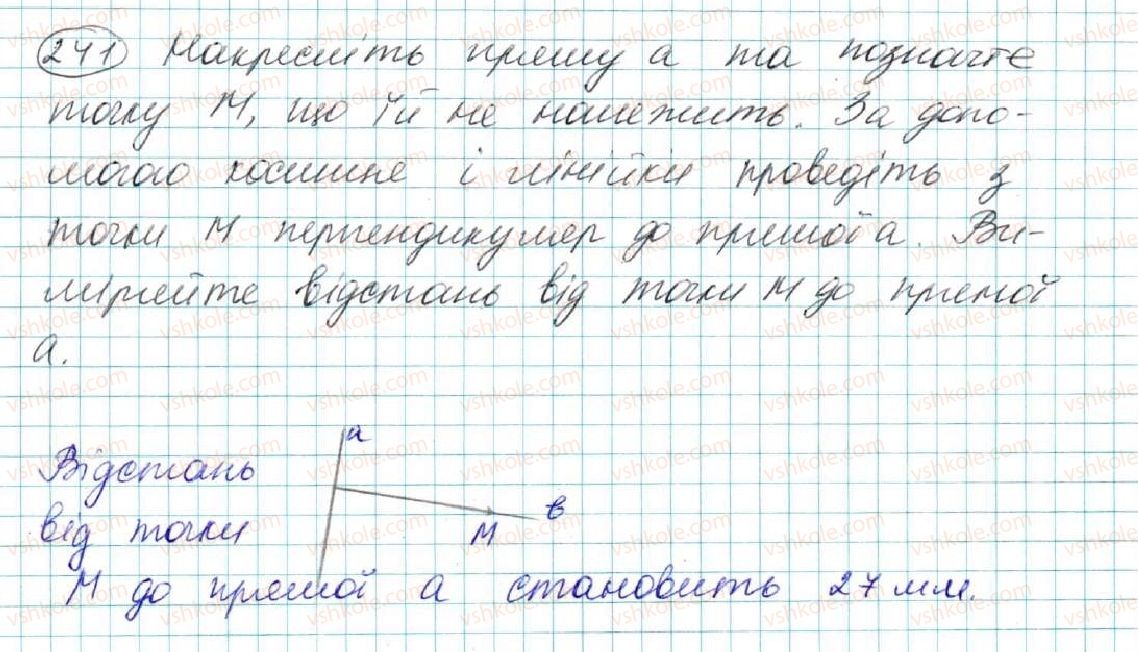 241 Накресліть пряму а та позначте
точку М, що їй не належить. За допо-
могою косинця і лінійки проведіть з
точки М перпендикуляр до прямої а. Ви-
міряйте відстань від точки М до прямої
а.
а
Відстань
в
від точки
М
М до прямої а становить 27 мм.